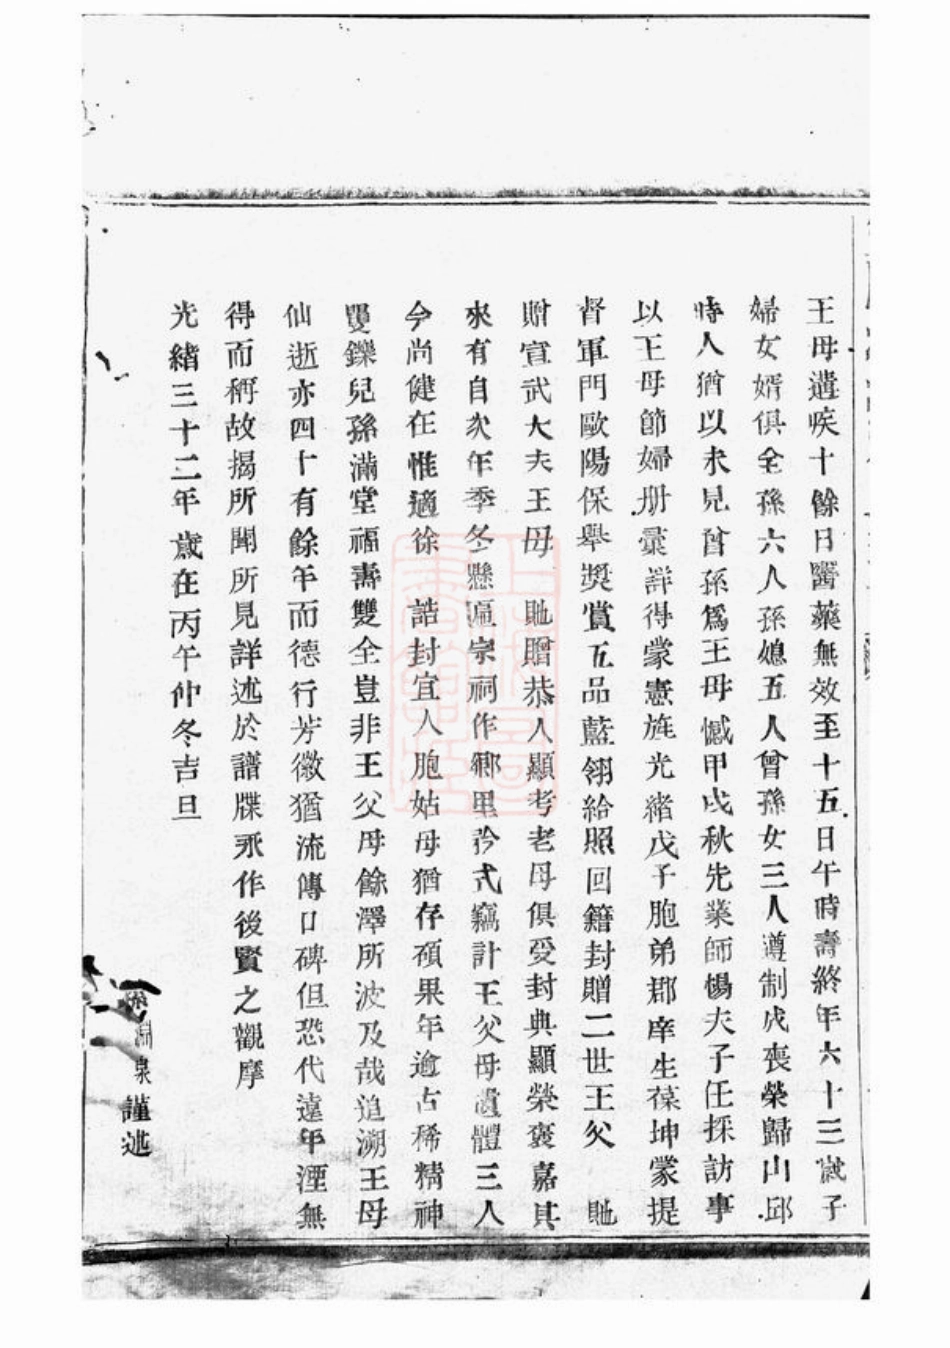 王母遘疾十餘日醫藥無效至十五日午時壽終年六十三歲子
婦女婿俱全孫六人孫媳五人曾孫女三人遵制成喪榮歸山邱
時人猶以未見曾孫爲王母憾甲戌秋先業師楊夫子任採訪事
以王母節婦册彙詳得蒙憲旌光緒戊子胞弟郡庠生葆坤蒙提
督軍門歐陽保舉獎賞五品藍翎給照回籍封贈二世王父 貤
贈宣武大夫王母 貤贈恭人顯考老母俱受封典顯榮褒嘉其
來有自次年季冬懸匾宗祠作鄉里矜式竊計王父母遺體三人
今尚健在惟適徐 誥封宜人胞姑母猶存碩果年逾占稀精神
矍鑠兒孫滿堂福壽雙全豈非王父母餘澤所波及哉追溯王母
仙逝亦四十有餘年而德行芳徽猶流傳口碑但恐代遠年湮無
得而稱故揭所聞所見詳述於譜牒永作後賢之觀摩
光緒三十二年歲在丙午仲冬吉旦
淵泉謹述